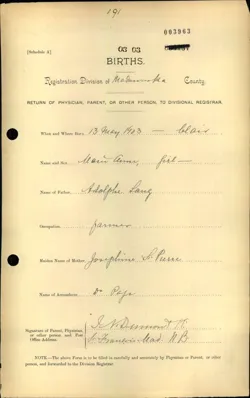 191
003963
[Schedule A]
03 03
BIRTHS.
Registration Division of County.
RETURN OF PHYSICIAN, PARENT, OR OTHER PERSON, TO DIVISIONAL REGISTRAR.
When and Where Born, 13 May 1903 — Clair
Name and Sex Marie Anne, girl —
Name of Father, Adolphe Lang
Occupation farmer
Maiden Name of Mother, Josephine St Pierre
Name of Accoucheur, Dr Page
Signature of Parent, Physician,
or other person, and Post
Office Address. St Francis Mad N B
NOTE.—The above Form is to be filled in carefully and accurately by Physician or Parent, or other
person, and forwarded to the Division Registrar.